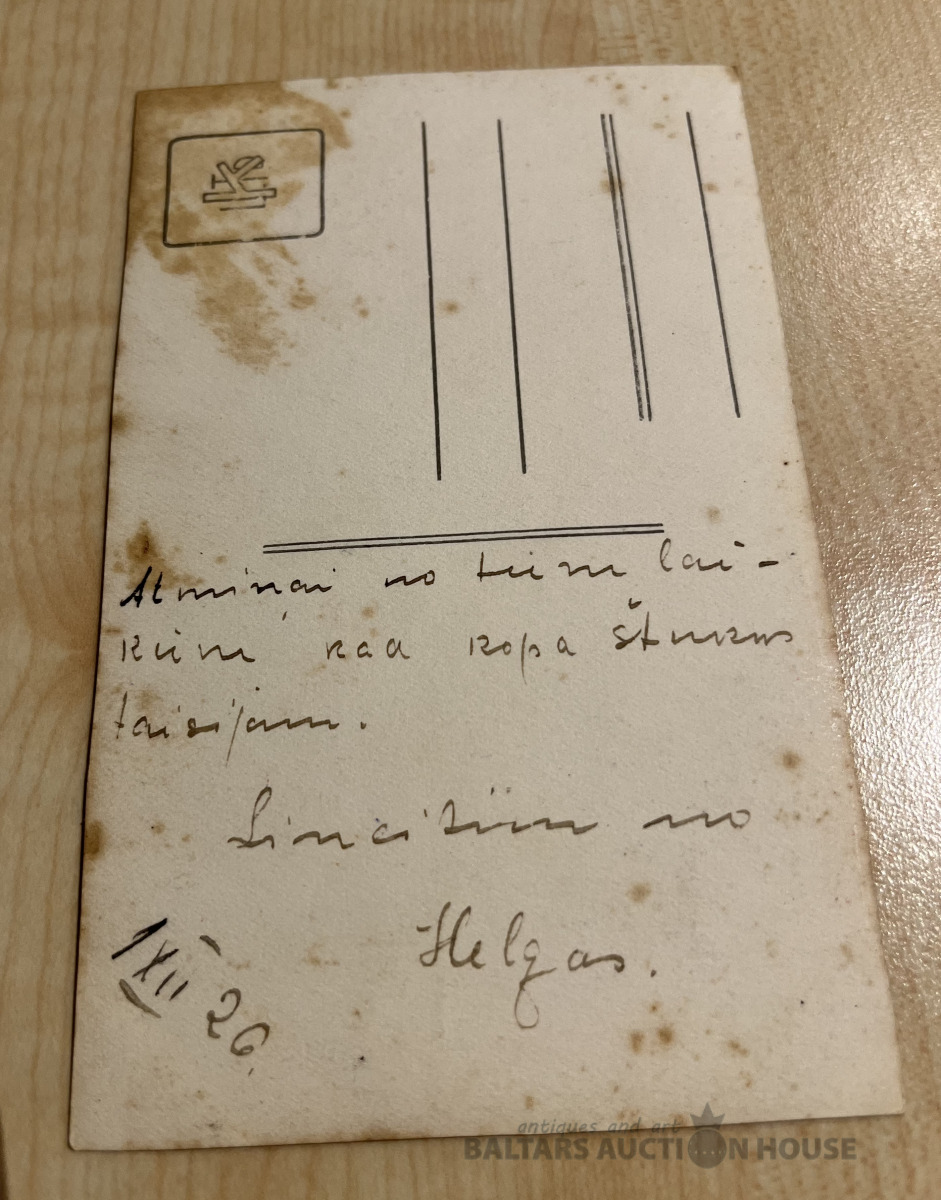 Atminai no tiem lai-
kiem, kad kopa štukas
taisijam.
no
Helgas.
1 XII 26.
antiques and art
BALTARS AUCTION HOUSE